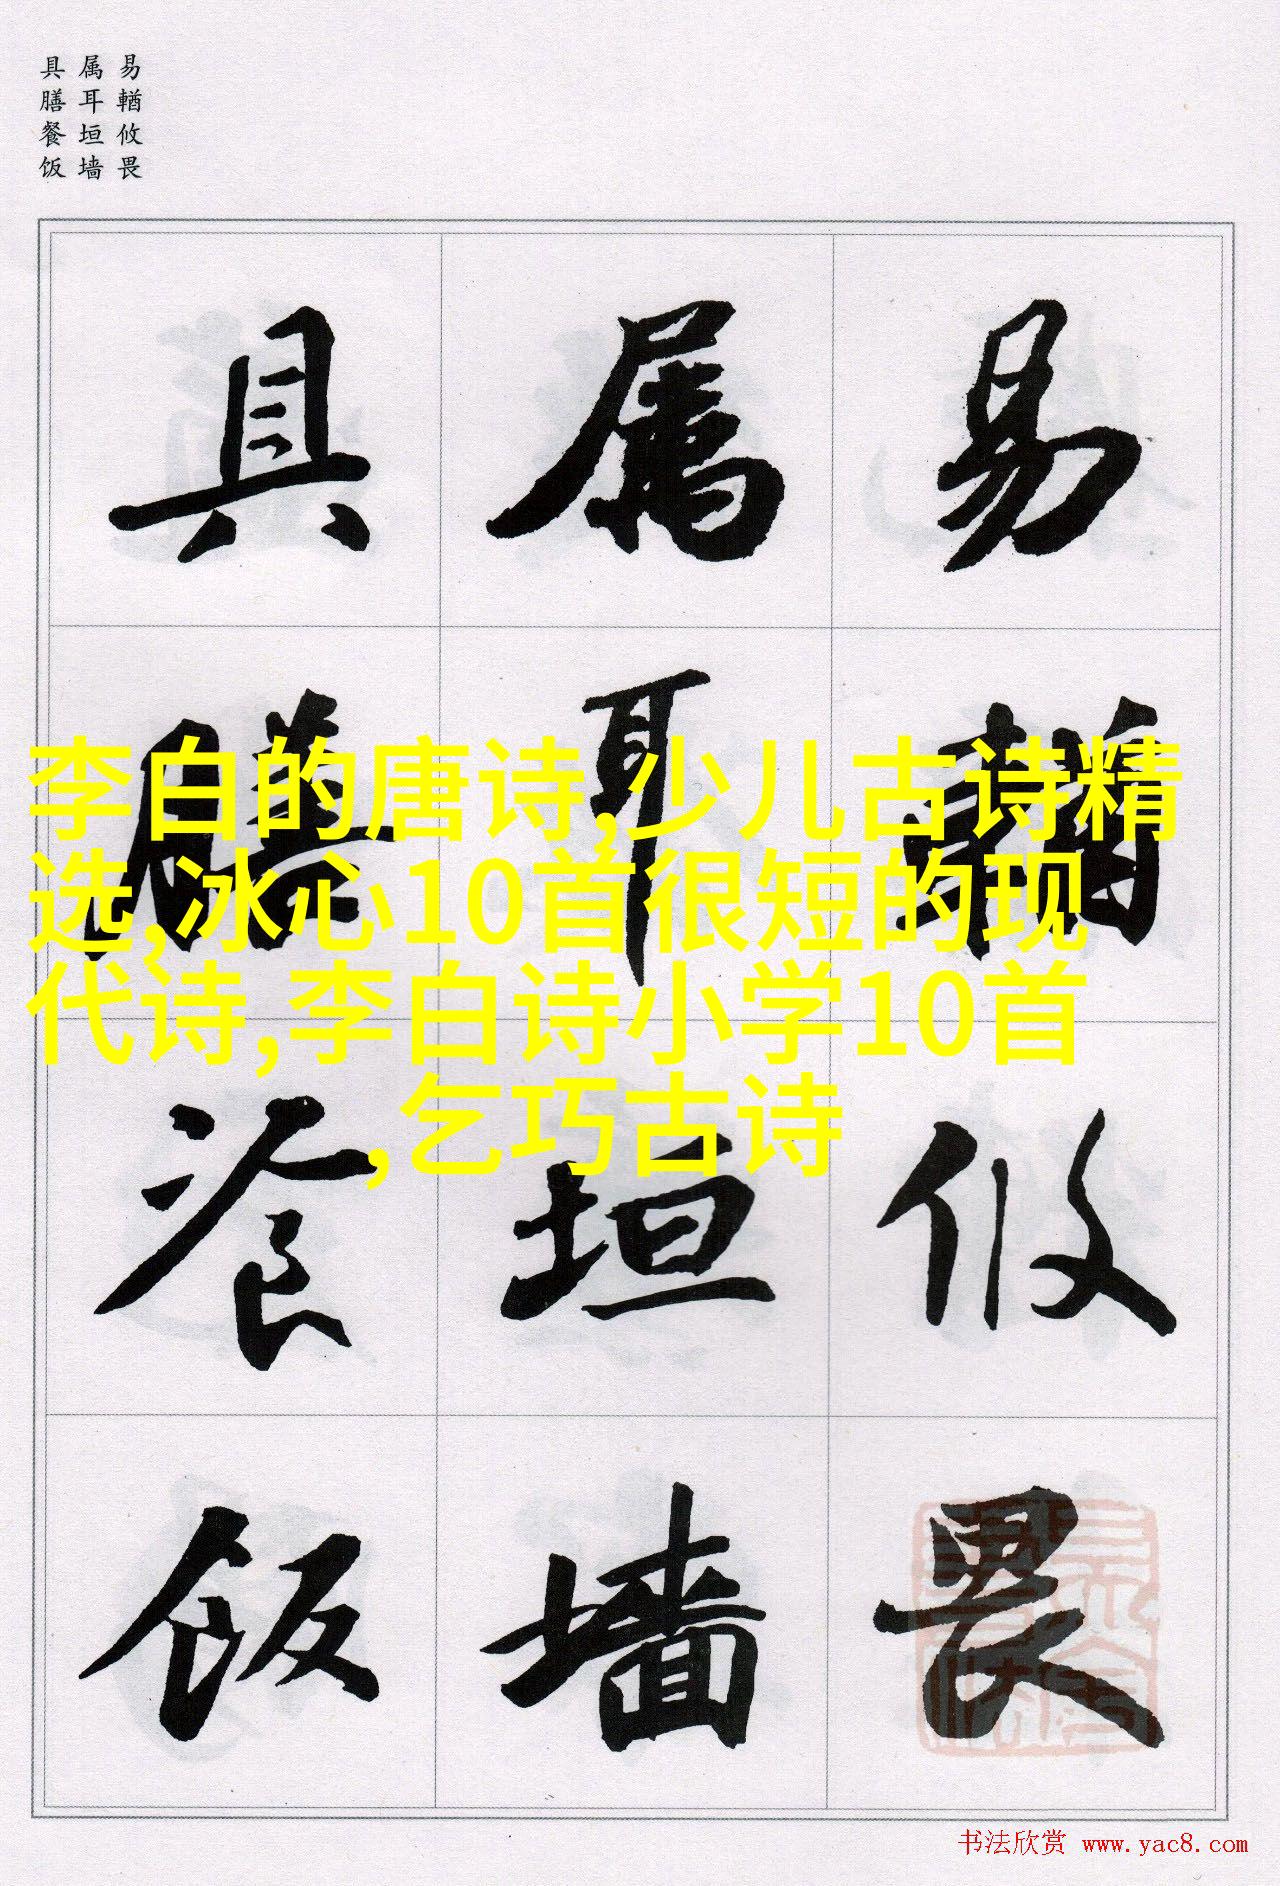 易輶攸畏
属耳垣墙
具膳餐饭
易輶攸畏
属耳垣墙
具膳飡饭
李白的唐诗,少儿古诗精
选,冰心10首很短的现
代诗,李白诗小学10首
,乞巧古诗
书法欣赏 www.yac8.com